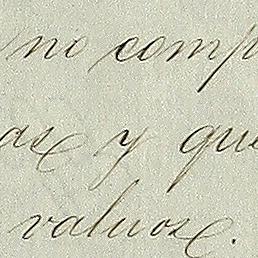 no comp
as y que
valuos.